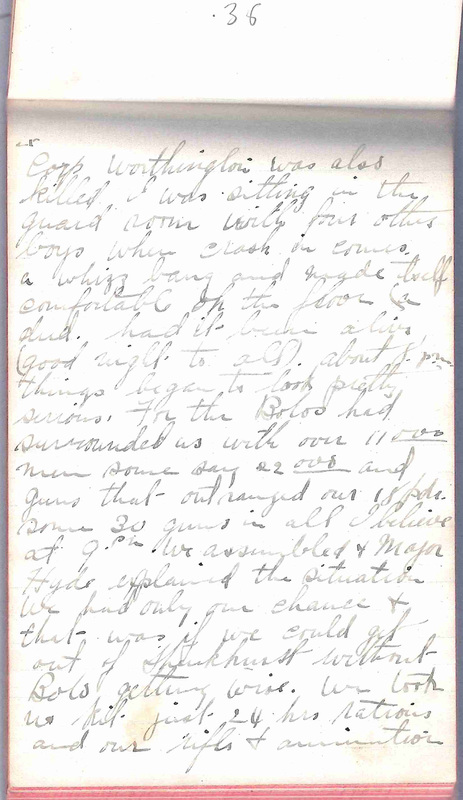 38
Corp Worthington was also
killed, I was sitting in the
guard room with four other
boys when crash in comes
a whizz bang and made itself
comfortable on the floor (a
dud. had it been alive
(good night to all). about 8 pm
things began to look pretty
serious. For the Bolos had
surrounded us with over 11000
men some say 22000 and
guns that outranged our 18 pds.
some 30 guns in all I believe
at 9.pm we assembled & Major
Hyde explained the situation
we had only one chance &
that was if we could get
out of Shenkhurst without
Bolo getting wise. We took
no kit just 24 hrs rations
and our rifle & ammunition